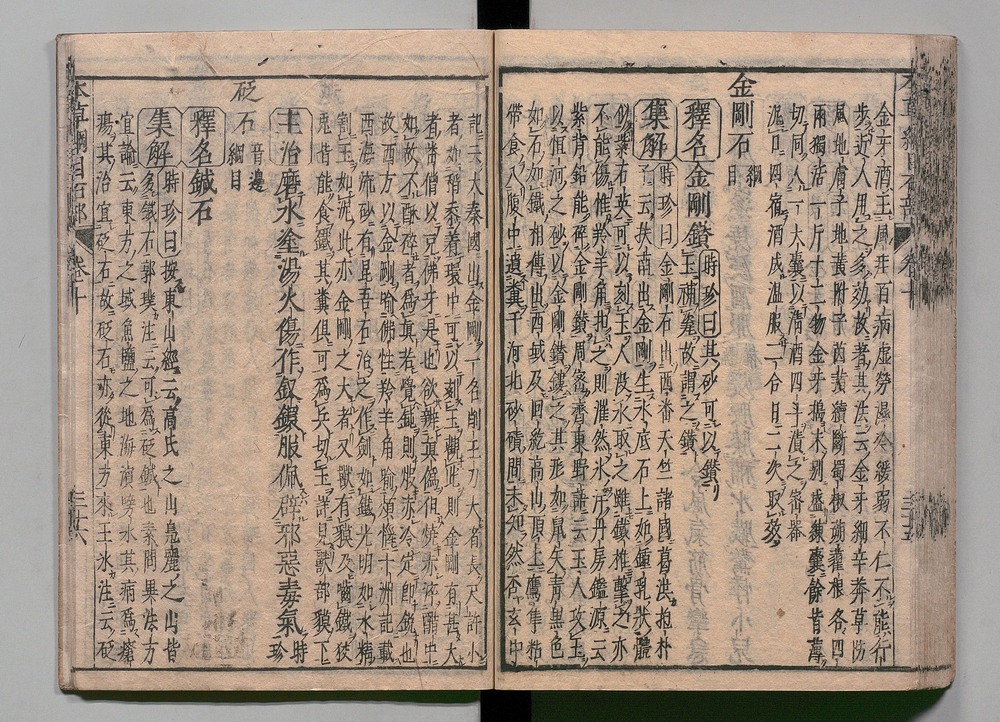 金牙酒主風疰百病虛勞濕冷緩弱不仁不能行
步近人用之多効故著其法云金牙細辛莽草防
風地膚子地黃附子茵蕷續斷蜀椒蒴藋根各四
兩獨活一斤十二物金牙搗末別盛練囊餘皆薄
切同入一大囊以清酒四斗漬之密器
泥口四宿酒成溫服二合日二次取效
金剛石 綱目
釋名 金剛鑽 時珍曰其砂可以鑽
玉補瓷故謂之鑽
集解 時珍曰金剛石出西番天竺諸國葛洪抱朴
子云扶南出金剛生水底石上如鍾乳狀體
似紫石英可以刻玉人沒水取之雖鐵椎擊之亦
不能傷惟羚羊角扣之則漼然氷泮丹房鑑源云
紫背鉛能碎金剛鑽周密齊東野語云玉人攻玉
以恆河之砂以金剛鑽鏤之其形如鼠矢青黑色
如石如鐵相傳出西域及回紇高山頂上鷹隼粘
帶食入腹中遺糞于河北砂磧間未知然否玄中
記云大秦國出金剛一名削玉刀大者長尺許小
者如稻黍着環中可以刻玉觀此則金剛有甚大
者番僧以充佛牙是也欲辨真偽但燒赤淬醋中
如故不酥碎者為真若覺鈍則煅赤冷定即銳也
故西方以金剛喻佛性羚羊角喻煩惱十洲記載
西海流砂有昆吾石治之作劍如鐵光明如水精
割玉如泥此亦金剛之大者又獸有貘及嚙鐵狡
兔皆能食鐵其糞俱可為兵切玉詳見獸部貘下
主治 磨水塗湯火傷作釵鐶服佩辟邪惡毒氣 時珍
砭石 音邊 綱目
釋名 鍼石
集解 時珍曰按東山經云高氏之山鳧麗之山皆
多鍼石郭璞注云可為砭鍼也素問異法方
宜論云東方之域魚鹽之地海濱傍水其病為瘡
瘍其治宜砭石故砭石亦從東方來王氷注云砭
本草綱目石部 卷十 三十六